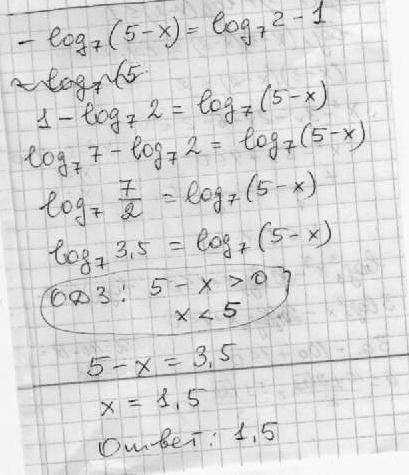 - log₇(5-x) = log₇2 - 1
log₇(5
1 - log₇2 = log₇(5-x)
log₇7 - log₇2 = log₇(5-x)
log₇ 7/2 = log₇(5-x)
log₇3,5 = log₇(5-x)
ОДЗ: 5-x>0
x<5
5-x = 3,5
x = 1,5
Ответ: 1,5